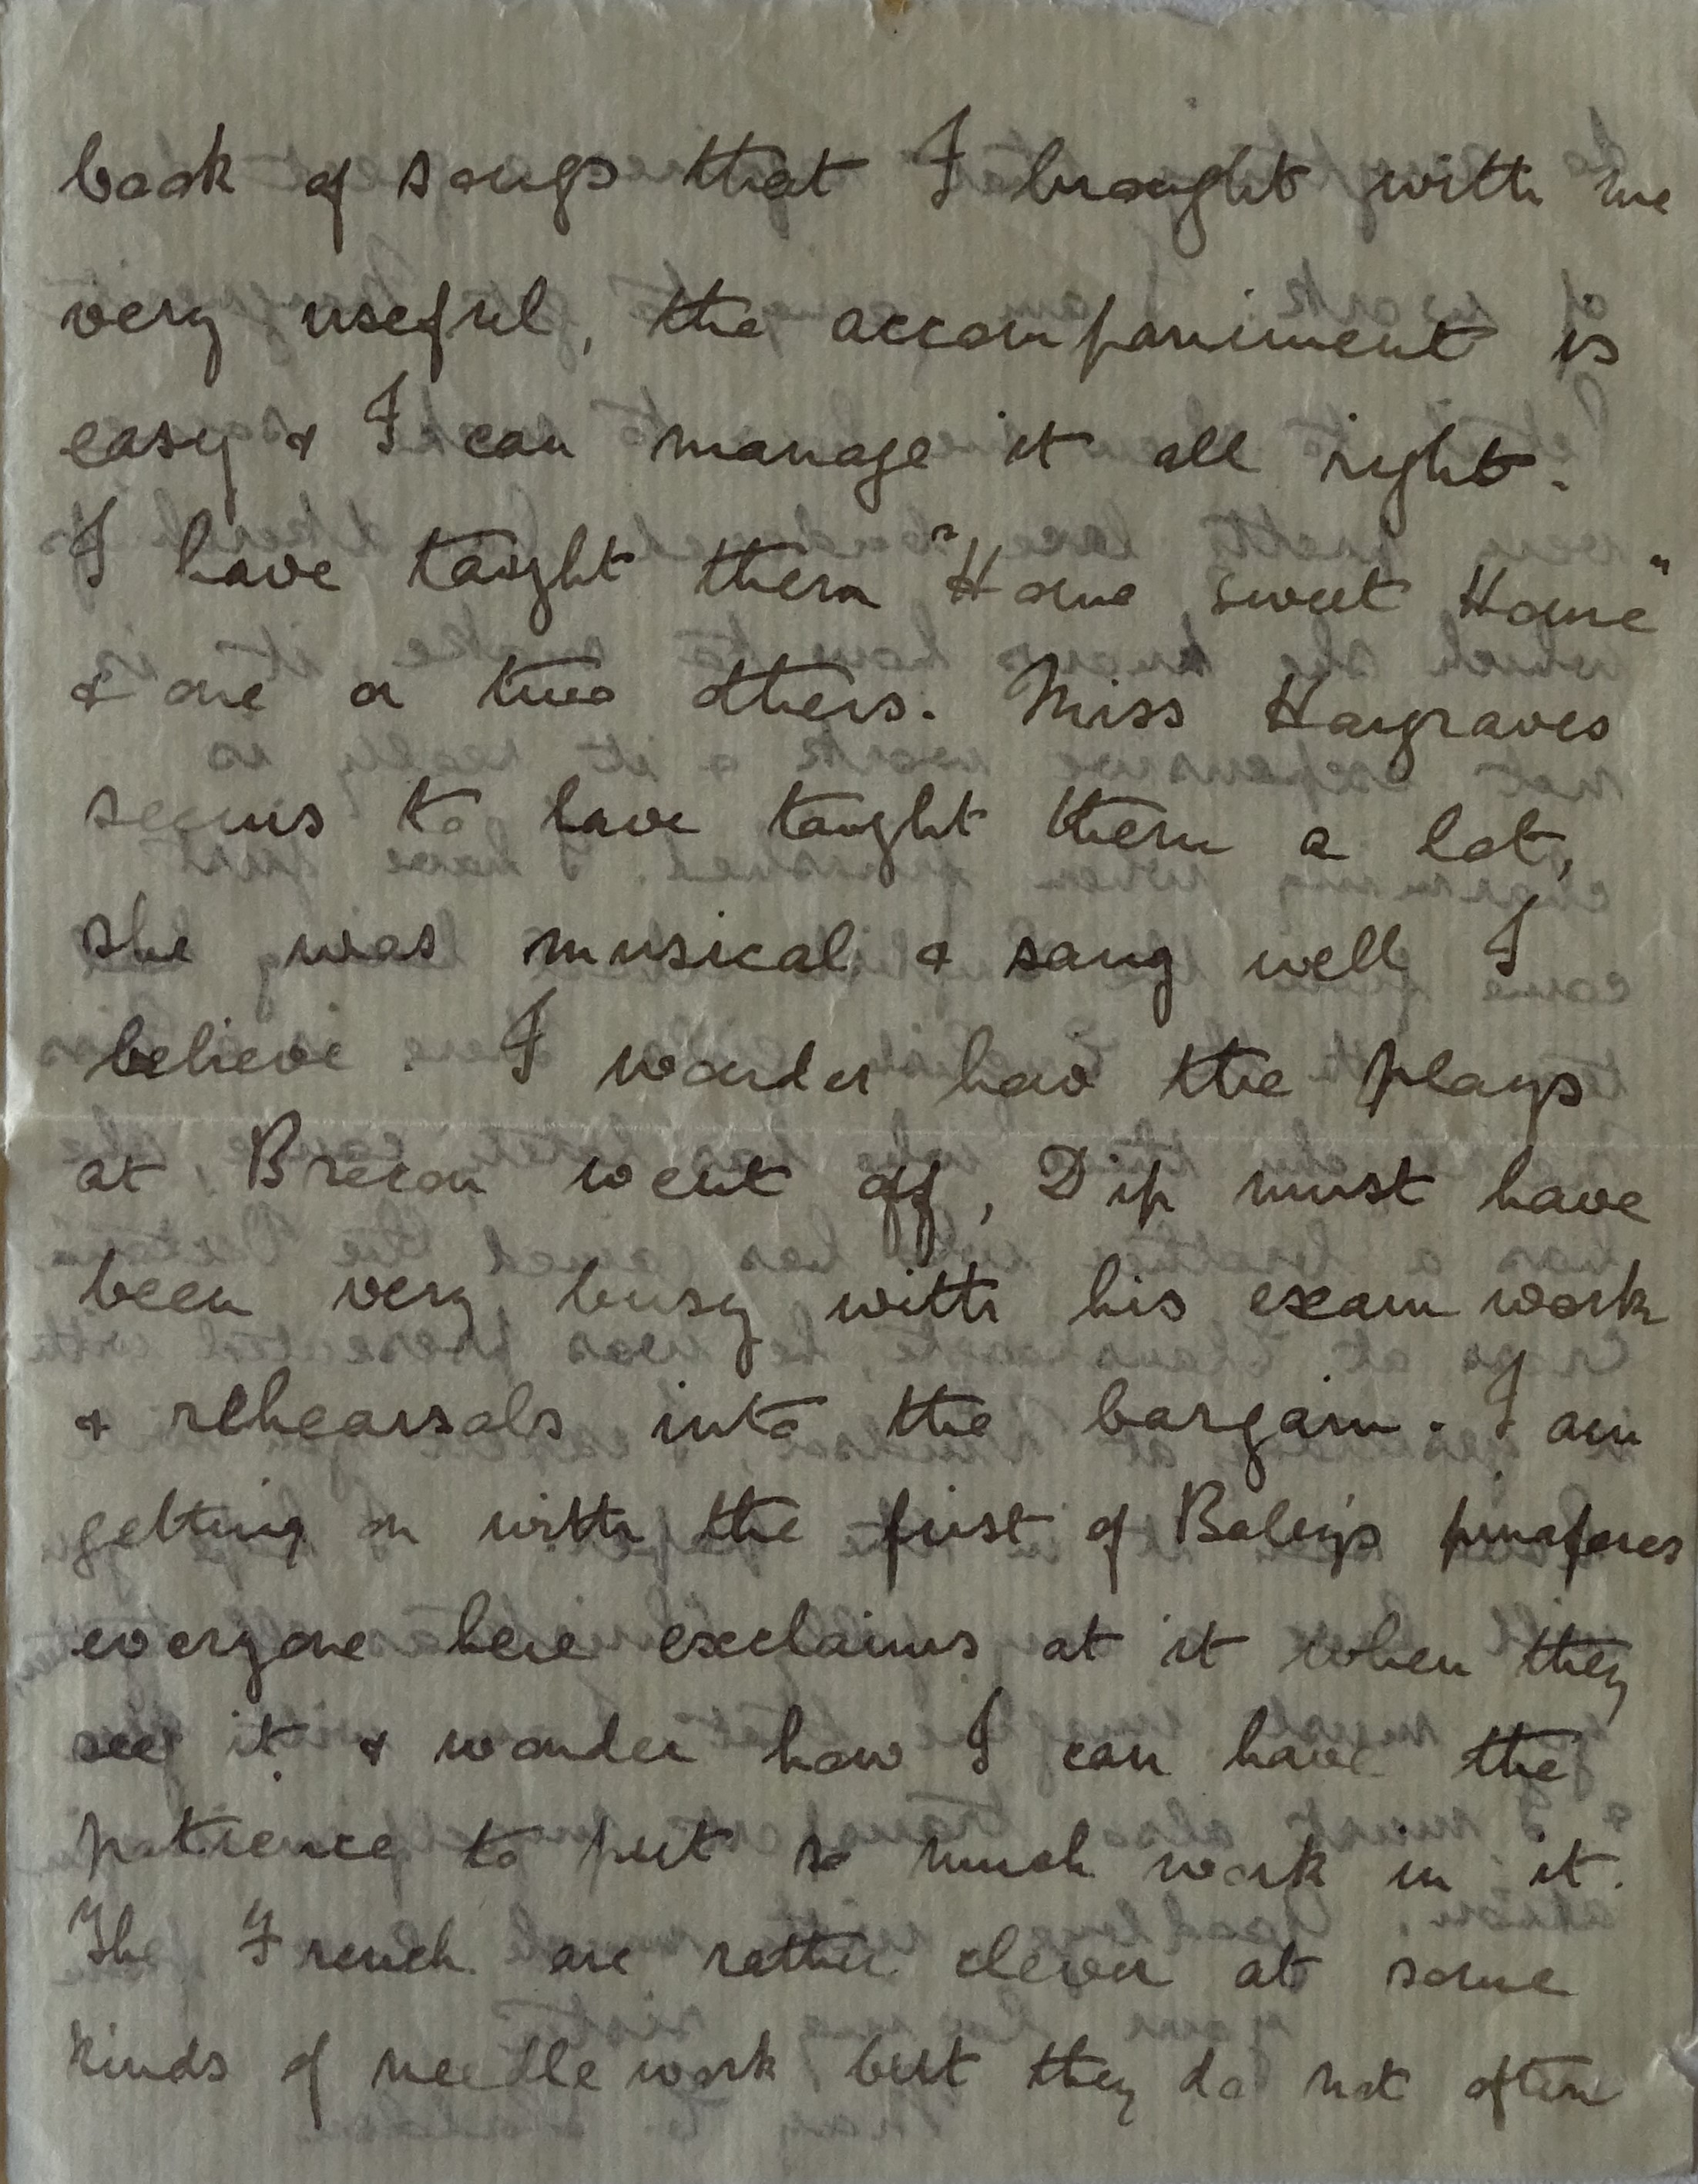 book of songs that I brought with me
very useful, the accompaniment is
easy & I can manage it all right.
I have taught them "Home sweet Home"
& one or two others. Miss Hargraves
seems to have taught them a lot,
she was musical & sang well I
believe. I wonder how the plays
at Brecon went off, Dip must have
been very busy with his exam work
& rehearsals into the bargain. I am
getting on with the first of Baby's pinafores
everyone here exclaims at it when they
see it & wonder how I can have the
patience to put so much work in it.
The French are rather clever at some
kinds of needle work but they do not often